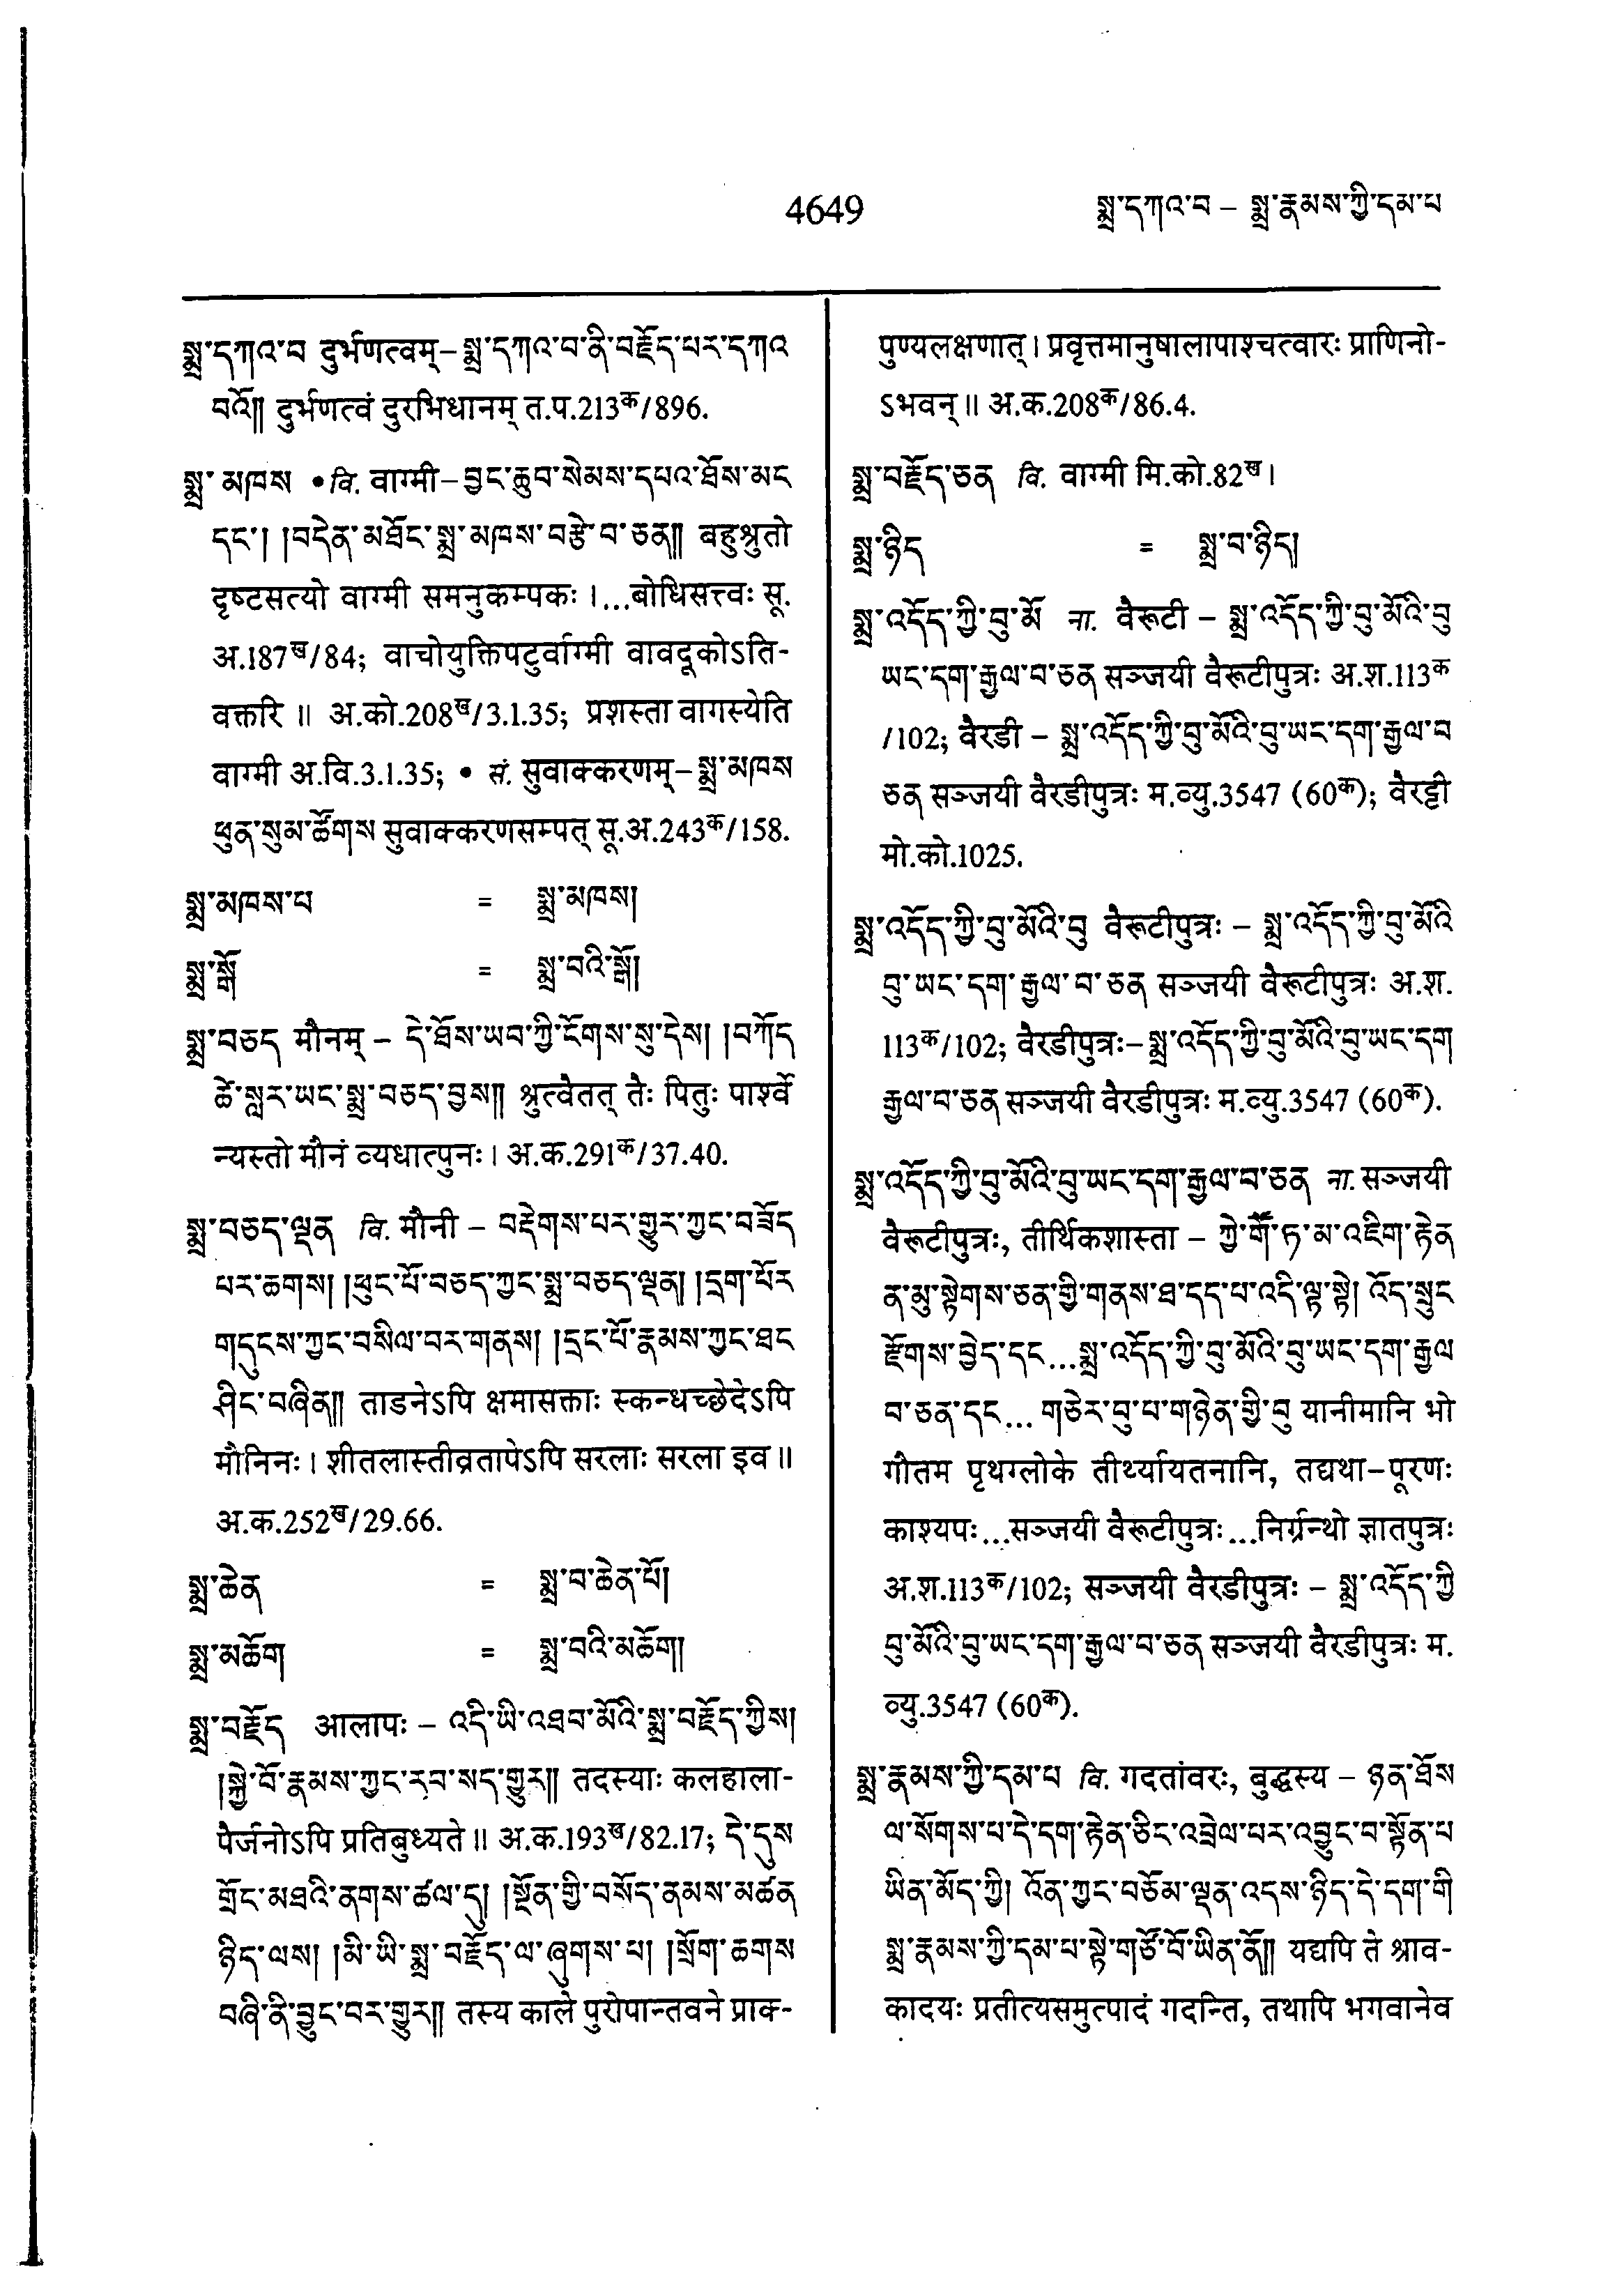 4649
སྨྲ་དཀའ་བ – སྨྲ་རྣམས་ཀྱི་དམ་པ
སྨྲ་དཀའ་བ दुर्भणत्वम्–སྨྲ་དཀའ་བ་ནི་བརྗོད་པར་དཀའ
བའོ།། दुर्भणत्वं दुरभिधानम् त.प.213क/896.
སྨྲ་ མཁས •वि. वाग्मी–བྱང་ཆུབ་སེམས་དཔའ་ཐོས་མང
དང་། །བདེན་མཐོང་སྨྲ་མཁས་བརྩེ་བ་ཅན།། बहुश्रुतो
दृष्टसत्यो वाग्मी समनुकम्पकः ।...बोधिसत्त्वः सू.
अ.187ख/84; वाचोयुक्तिपटुर्वाग्मी वावदूकोऽति-
वक्तरि ॥ अ.को.208ख/3.1.35; प्रशस्ता वागस्येति
वाग्मी अ.वि.3.1.35; • सं. सुवाक्करणम्–སྨྲ་མཁས
ཕུན་སུམ་ཚོགས सुवाक्करणसम्पत् सू.अ.243क/158.
སྨྲ་མཁས་པ = སྨྲ་མཁས།
སྨྲ་སྒོ = སྨྲ་བའི་སྒོ།
སྨྲ་བཅད मौनम् – དེ་ཐོས་ཡབ་ཀྱི་ངོགས་སུ་དེས། །བཀོད
ཚེ་སླར་ཡང་སྨྲ་བཅད་བྱས།། श्रुत्वैतत् तैः पितुः पार्श्वे
न्यस्तो मौनं व्यधात्पुनः । अ.क.291क/37.40.
སྨྲ་བཅད་ལྡན वि. मौनी – བརྡེགས་པར་གྱུར་ཀྱང་བཟོད
པར་ཆགས། །ཕུང་པོ་བཅད་ཀྱང་སྨྲ་བཅད་ལྡན། །དྲག་པོར
གདུངས་ཀྱང་བསིལ་བར་གནས། །དྲང་པོ་རྣམས་ཀྱང་ཐང
ཤིང་བཞིན།། ताडनेऽपि क्षमासक्ताः स्कन्धच्छेदेऽपि
मौनिनः । शीतलास्तीव्रतापेऽपि सरलाः सरला इव ॥
अ.क.252ख/29.66.
སྨྲ་ཆེན = སྨྲ་བ་ཆེན་པོ།
སྨྲ་མཆོག = སྨྲ་བའི་མཆོག།
སྨྲ་བརྗོད आलापः – འདི་ཡི་འཐབ་མོའི་སྨྲ་བརྗོད་ཀྱིས།
།སྐྱེ་བོ་རྣམས་ཀྱང་རབ་སད་གྱུར།། तदस्याः कलहाला-
पैर्जनोऽपि प्रतिबुध्यते ॥ अ.क.193ख/82.17; དེ་དུས
གྲོང་མཐའི་ནགས་ཚལ་དུ། །སྔོན་གྱི་བསོད་ནམས་མཚན
ཉིད་ལས། །མི་ཡི་སྨྲ་བརྗོད་ལ་ཞུགས་པ། །སྲོག་ཆགས
བཞི་ནི་བྱུང་བར་གྱུར།། तस्य काले पुरोपान्तवने प्राक्-
पुण्यलक्षणात् । प्रवृत्तमानुषालापाश्चत्वारः प्राणिनो-
ऽभवन् ॥ अ.क.208क/86.4.
སྨྲ་བརྗོད་ཅན वि. वाग्मी मि.को.82ख ।
སྨྲ་ཉིད = སྨྲ་བ་ཉིད།
སྨྲ་འདོད་ཀྱི་བུ་མོ ना. वैरूटी – སྨྲ་འདོད་ཀྱི་བུ་མོའི་བུ
ཡང་དག་རྒྱལ་བ་ཅན सञ्जयी वैरूटीपुत्रः अ.श.113क
/102; वैरडी – སྨྲ་འདོད་ཀྱི་བུ་མོའི་བུ་ཡང་དག་རྒྱལ་བ
ཅན सञ्जयी वैरडीपुत्रः म.व्यु.3547 (60क); वैरट्टी
मो.को.1025.
སྨྲ་འདོད་ཀྱི་བུ་མོའི་བུ वैरूटीपुत्रः – སྨྲ་འདོད་ཀྱི་བུ་མོའི
བུ་ཡང་དག་རྒྱལ་བ་ཅན सञ्जयी वैरूटीपुत्रः अ.श.
113क/102; वैरडीपुत्रः–སྨྲ་འདོད་ཀྱི་བུ་མོའི་བུ་ཡང་དག
རྒྱལ་བ་ཅན सञ्जयी वैरडीपुत्रः म.व्यु.3547 (60क).
སྨྲ་འདོད་ཀྱི་བུ་མོའི་བུ་ཡང་དག་རྒྱལ་བ་ཅན ना. सञ्जयी
वैरूटीपुत्रः, तीर्थिकशास्ता – ཀྱེ་གཽ་ཏ་མ་འཇིག་རྟེན
ན་མུ་སྟེགས་ཅན་གྱི་གནས་ཐ་དད་པ་འདི་ལྟ་སྟེ། འོད་སྲུང
རྫོགས་བྱེད་དང...སྨྲ་འདོད་ཀྱི་བུ་མོའི་བུ་ཡང་དག་རྒྱལ
བ་ཅན་དང... གཅེར་བུ་པ་གཉེན་གྱི་བུ यानीमानि भो
गौतम पृथग्लोके तीर्थ्यायतनानि, तद्यथा–पूरणः
काश्यपः...सञ्जयी वैरूटीपुत्रः...निर्ग्रन्थो ज्ञातपुत्रः
अ.श.113क/102; सञ्जयी वैरडीपुत्रः – སྨྲ་འདོད་ཀྱི
བུ་མོའི་བུ་ཡང་དག་རྒྱལ་བ་ཅན सञ्जयी वैरडीपुत्रः म.
व्यु.3547 (60क).
སྨྲ་རྣམས་ཀྱི་དམ་པ वि. गदतांवरः, बुद्धस्य – ཉན་ཐོས
ལ་སོགས་པ་དེ་དག་རྟེན་ཅིང་འབྲེལ་པར་འབྱུང་བ་སྟོན་པ
ཡིན་མོད་ཀྱི། འོན་ཀྱང་བཅོམ་ལྡན་འདས་ཉིད་དེ་དག་གི
སྨྲ་རྣམས་ཀྱི་དམ་པ་སྟེ་གཙོ་བོ་ཡིན་ནོ།། यद्यपि ते श्राव-
कादयः प्रतीत्यसमुत्पादं गदन्ति, तथापि भगवानेव